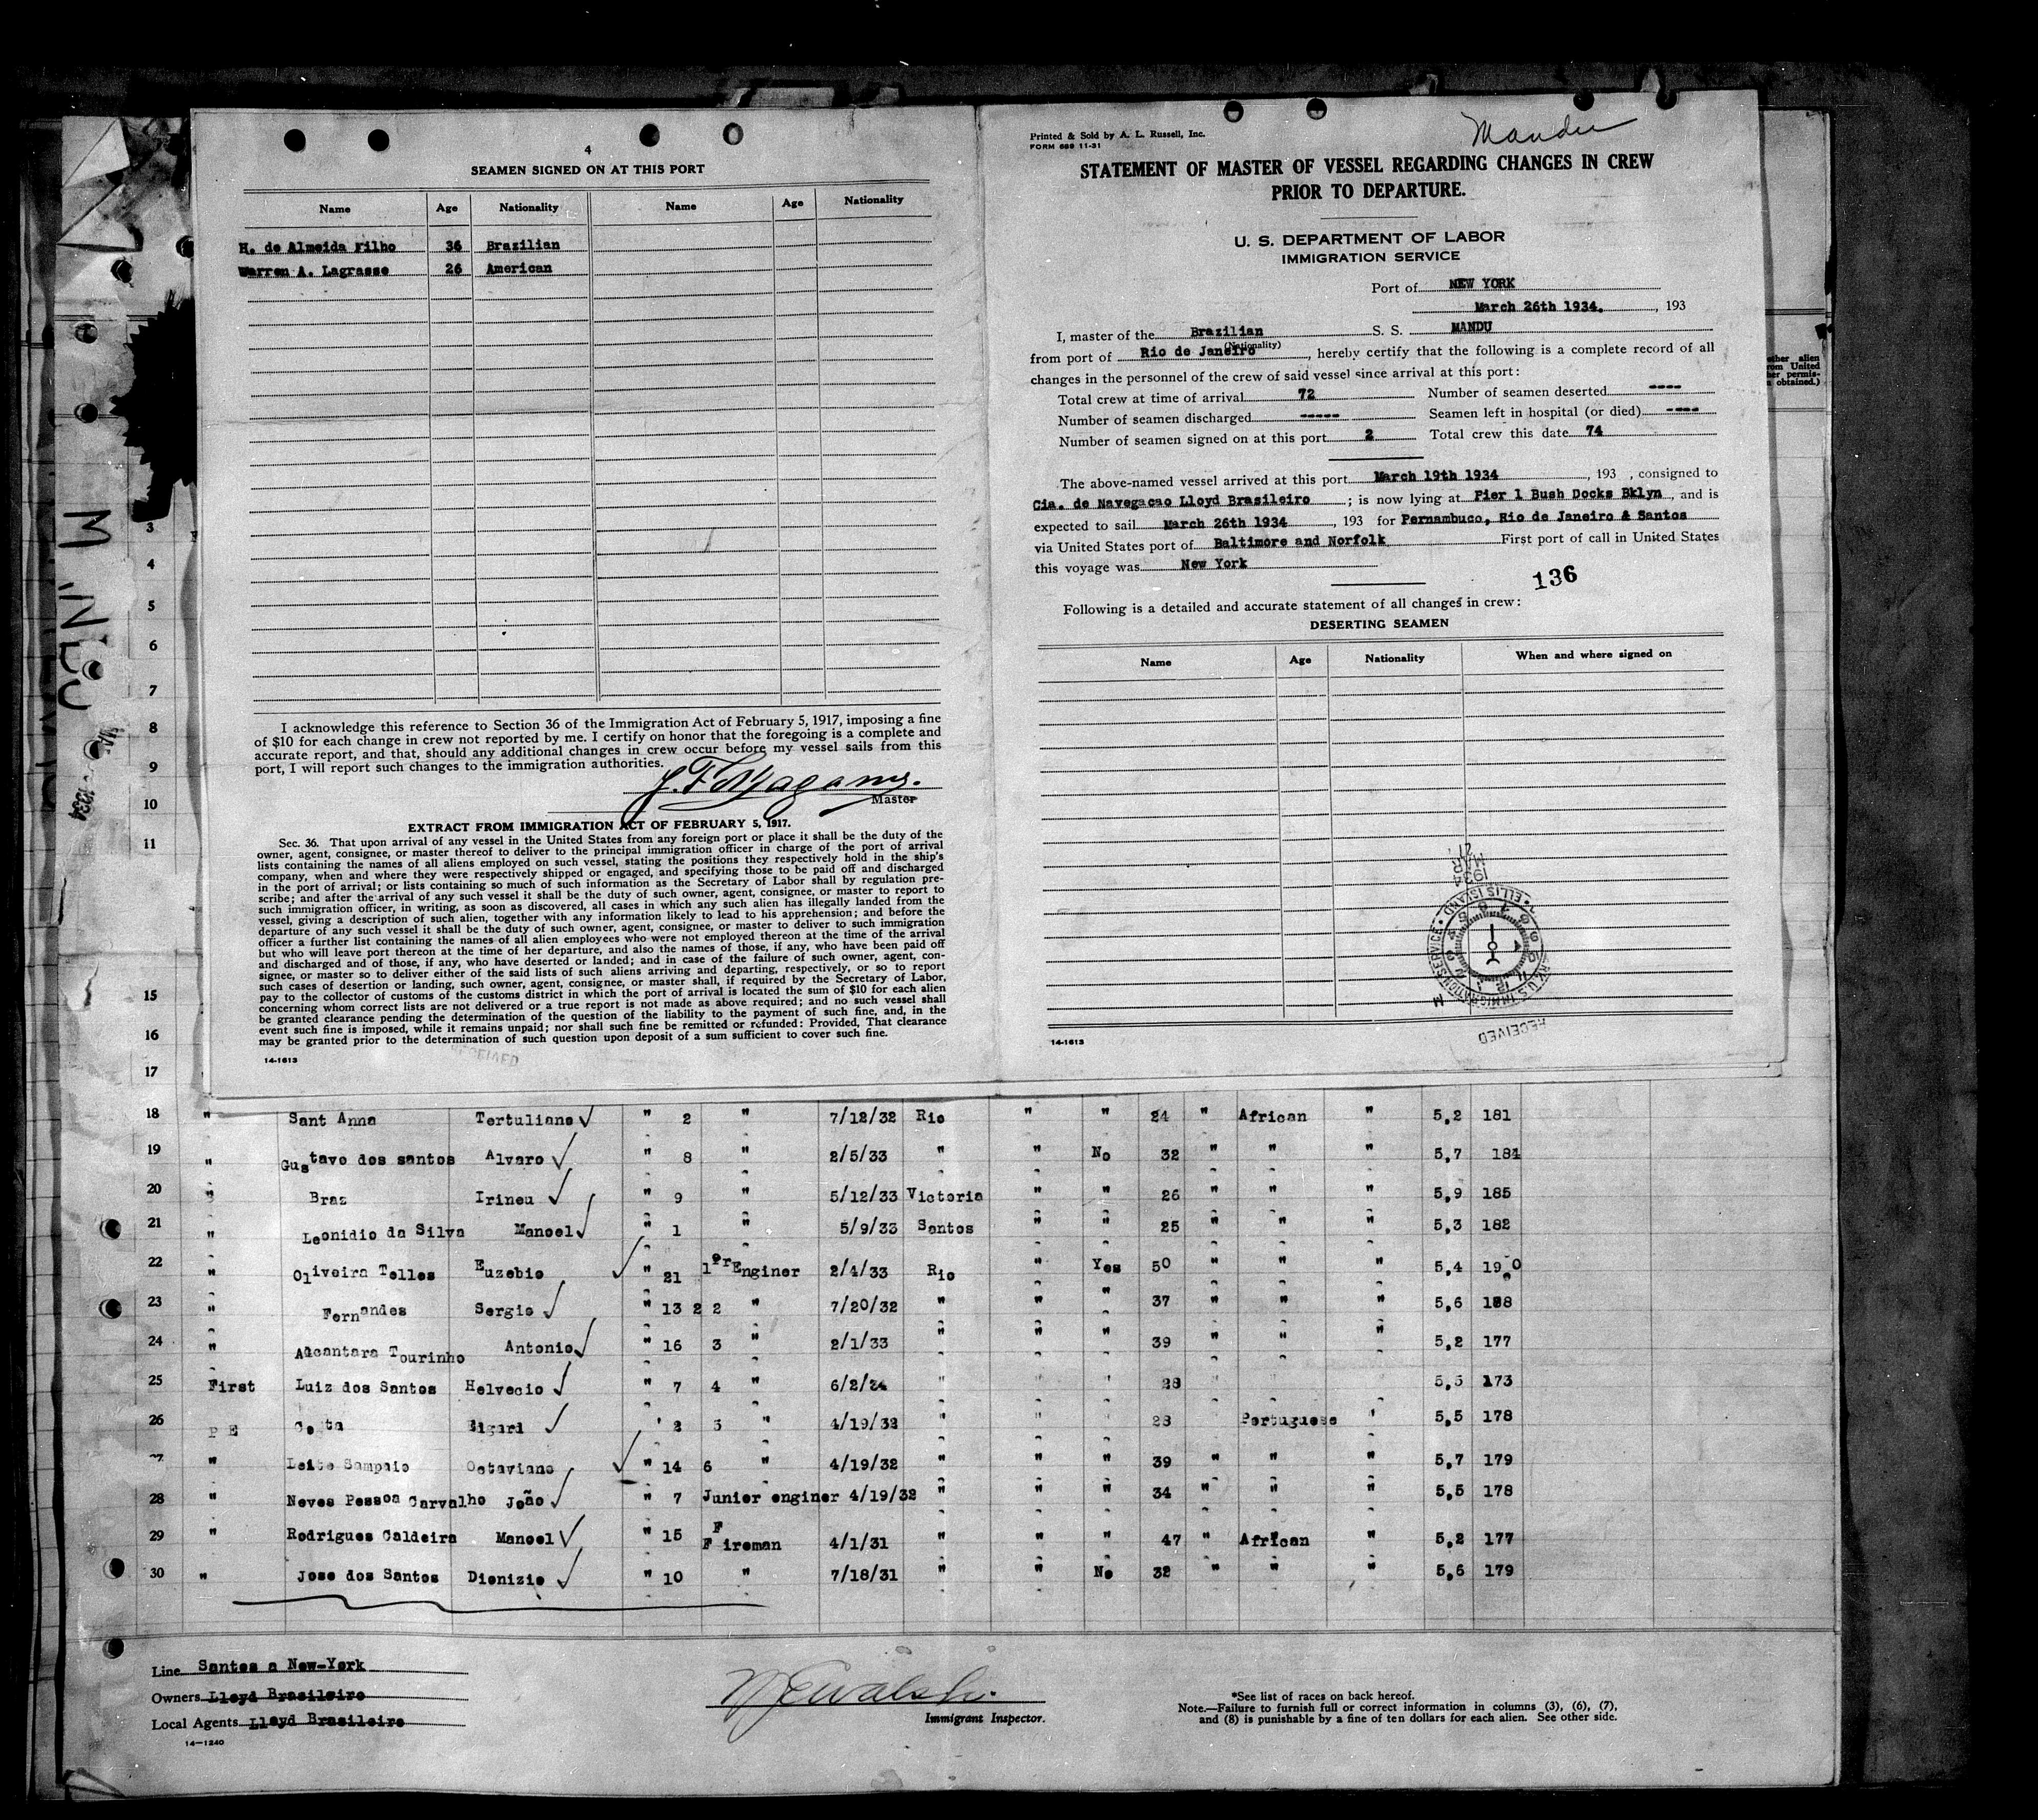 4
SEAMEN SIGNED ON AT THIS PORT
Name Age Nationality Name Age Nationality
H. de Almeida Filho 36 Brazilian
Warren A. Lagrasse 26 American
I acknowledge this reference to Section 36 of the Immigration Act of February 5, 1917, imposing a fine
of $10 for each change in crew not reported by me. I certify on honor that the foregoing is a complete and
accurate report, and that, should any additional changes in crew occur before my vessel sails from this
port, I will report such changes to the immigration authorities.
Master
EXTRACT FROM IMMIGRATION ACT OF FEBRUARY 5, 1917.
Sec. 36. That upon arrival of any vessel in the United States from any foreign port or place it shall be the duty of the
owner, agent, consignee, or master thereof to deliver to the principal immigration officer in charge of the port of arrival
lists containing the names of all aliens employed on such vessel, stating the positions they respectively hold in the ship's
company, when and where they were respectively shipped or engaged, and specifying those to be paid off and discharged
in the port of arrival; or lists containing so much of such information as the Secretary of Labor shall by regulation pre-
scribe; and after the arrival of any such vessel it shall be the duty of such owner, agent, consignee, or master to report to
such immigration officer, in writing, as soon as discovered, all cases in which any such alien has illegally landed from the
vessel, giving a description of such alien, together with any information likely to lead to his apprehension; and before the
departure of any such vessel it shall be the duty of such owner, agent, consignee, or master to deliver to such immigration
officer a further list containing the names of all alien employees who were not employed thereon at the time of the arrival
but who will leave port thereon at the time of her departure, and also the names of those, if any, who have been paid off
and discharged and of those, if any, who have deserted or landed; and in case of the failure of such owner, agent, con-
signee, or master so to deliver either of the said lists of such aliens arriving and departing, respectively, or so to report
such cases of desertion or landing, such owner, agent, consignee, or master shall, if required by the Secretary of Labor,
pay to the collector of customs of the customs district in which the port of arrival is located the sum of $10 for each alien
concerning whom correct lists are not delivered or a true report is not made as above required; and no such vessel shall
be granted clearance pending the determination of the question of the liability to the payment of such fine, and, in the
event such fine is imposed, while it remains unpaid; nor shall such fine be remitted or refunded: Provided, That clearance
may be granted prior to the determination of such question upon deposit of a sum sufficient to cover such fine.
14-1613
RECEIVED
Printed & Sold by A. L. Russell, Inc.
FORM 689 11-31
Mandu
STATEMENT OF MASTER OF VESSEL REGARDING CHANGES IN CREW
PRIOR TO DEPARTURE.
U. S. DEPARTMENT OF LABOR
IMMIGRATION SERVICE
Port of NEW YORK
March 26th 1934. , 193
I, master of the Brazilian S. S. MANDU
(Nationality)
from port of Rio de Janeiro , hereby certify that the following is a complete record of all
changes in the personnel of the crew of said vessel since arrival at this port:
Total crew at time of arrival 72 Number of seamen deserted ----
Number of seamen discharged ----- Seamen left in hospital (or died) ----
Number of seamen signed on at this port 2 Total crew this date 74
The above-named vessel arrived at this port March 19th 1934 , 193 , consigned to
Cia. de Navegacao Lloyd Brasileiro ; is now lying at Pier 1 Bush Docks Bklyn , and is
expected to sail March 26th 1934 , 193 for Pernambuco, Rio de Janeiro & Santos
via United States port of Baltimore and Norfolk First port of call in United States
this voyage was New York
136
Following is a detailed and accurate statement of all changes in crew:
DESERTING SEAMEN
Name Age Nationality When and where signed on
1934
MAR
27
U.S. IMMIGRATION SERVICE
ELLIS ISLAND
RECEIVED
14-1613
ether alien
rom United
her permis-
n obtained.)
3
4
5
6
7
8
9
10
11
15
16
17
18 " Sant Anna Tertuliano ✓ " 2 " 7/12/32 Rio " " 24 " African " 5,2 181
19 " Gustavo dos santos Alvaro ✓ " 8 " 2/5/33 " " No 32 " " " 5,7 184
20 " Braz Irineu ✓ " 9 " 5/12/33 Victoria " " 26 " " " 5,9 185
21 " Leonidio da Silva Manoel ✓ " 1 " 5/9/33 Santos " " 25 " " " 5,3 182
22 " Oliveira Telles Euzebio ✓ " 21 1er Enginer 2/4/33 Rio " Yes 50 " " " 5,4 190
23 " Fernandes Sergio ✓ " 13 2 2 " 7/20/32 " " " 37 " " " 5,6 188
24 " Alcantara Tourinho Antonio ✓ " 16 3 " 2/1/33 " " " 39 " " " 5,2 177
25 First Luiz dos Santos Helvecio ✓ " 7 4 " 6/2/34 " " " 28 " " " 5,5 173
26 P E Costa ✓ " 2 5 " 4/19/32 " " " 28 Portuguese " 5,5 178
27 " Leite Sampaio Octaviano ✓ " 14 6 " 4/19/32 " " " 39 " " " 5,7 179
28 " Neves Pessoa Carvalho João ✓ " 7 Junior enginer 4/19/32 " " " 34 " " " 5,5 178
29 " Rodrigues Caldeira Manoel ✓ " 15 Fireman 4/1/31 " " " 47 " African " 5,2 177
30 " Jose dos Santos Dionizio ✓ " 10 " 7/18/31 " " No 32 " " " 5,6 179
Line Santos a New-York
Owners Lloyd Brasileiro
Local Agents Lloyd Brasileiro
14-1240
Immigrant Inspector.
*See list of races on back hereof.
Note.—Failure to furnish full or correct information in columns (3), (6), (7),
and (8) is punishable by a fine of ten dollars for each alien. See other side.